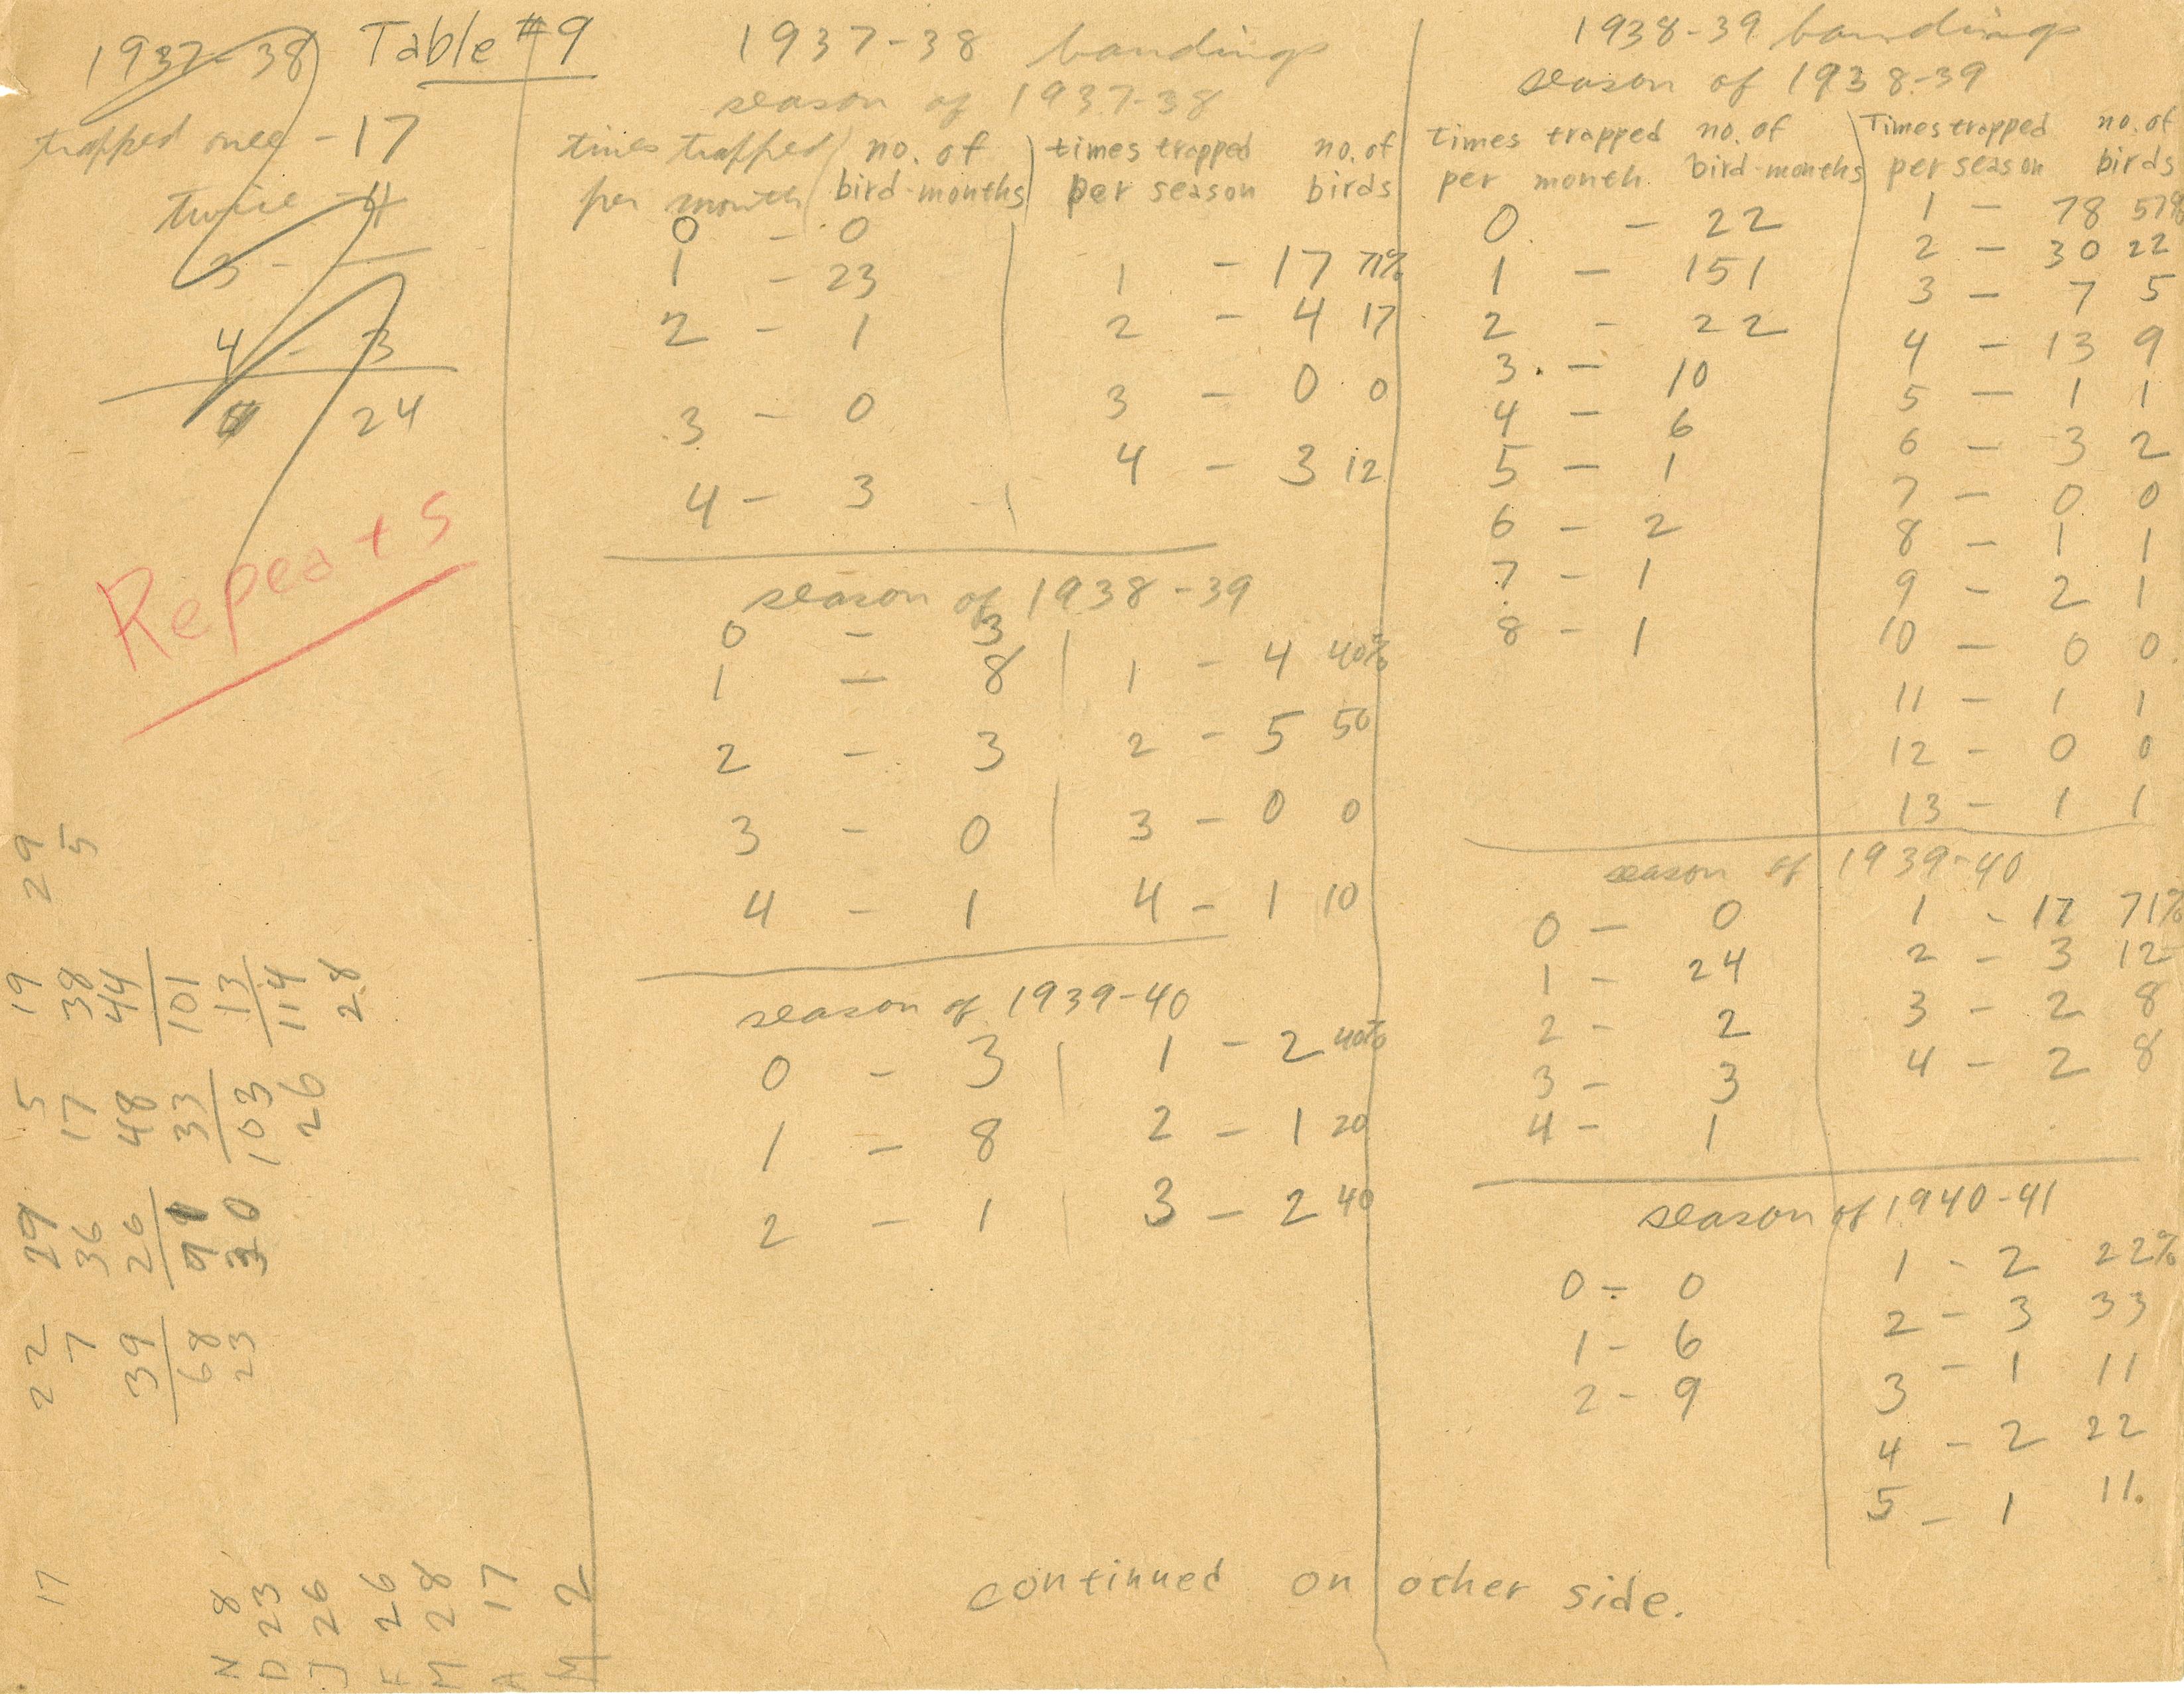 Table #9
1937-38
trapped once - 17
twice - 4
3 - —
4 - 3
24
Repeats
1937-38 bandings
season of 1937-38
times trapped per month | no. of bird-months | times trapped per season | no. of birds
0 - 0
1 - 23 | 1 - 17 71%
2 - 1 | 2 - 4 17
3 - 0 | 3 - 0 0
4 - 3 | 4 - 3 12
season of 1938-39
0 - 3
1 - 8 | 1 - 4 40%
2 - 3 | 2 - 5 50
3 - 0 | 3 - 0 0
4 - 1 | 4 - 1 10
season of 1939-40
0 - 3 | 1 - 2 40%
1 - 8 | 2 - 1 20
2 - 1 | 3 - 2 40
1938-39 bandings
season of 1938-39
times trapped per month | no. of bird-months | Times trapped per season | no. of birds
0 - 22 | 1 - 78 57%
1 - 151 | 2 - 30 22
2 - 22 | 3 - 7 5
3 - 10 | 4 - 13 9
4 - 6 | 5 - 1 1
5 - 1 | 6 - 3 2
6 - 2 | 7 - 0 0
7 - 1 | 8 - 1 1
8 - 1 | 9 - 2 1
10 - 0 0
11 - 1 1
12 - 0 0
13 - 1 1
season of 1939-40
0 - 0 | 1 - 17 71%
1 - 24 | 2 - 3 12
2 - 2 | 3 - 2 8
3 - 3 | 4 - 2 8
4 - 1
season of 1940-41
0 - 0 | 1 - 2 22%
1 - 6 | 2 - 3 33
2 - 9 | 3 - 1 11
4 - 2 22
5 - 1 11.
continued on other side.
17
22 29 5 19 29
7 36 17 38 5
39 26 48 44
68 91 33 101
23 30 103 13
26 114
28
N 8
D 23
J 26
F 26
M 28
A 17
M 2